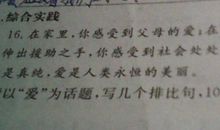 综合实践
16.在家里,你感受到父母的爱;在
伸出援助之手,你感受到社会处处
是真纯,爱是人类永恒的美丽。
以“爱”为话题,写几个排比句,10